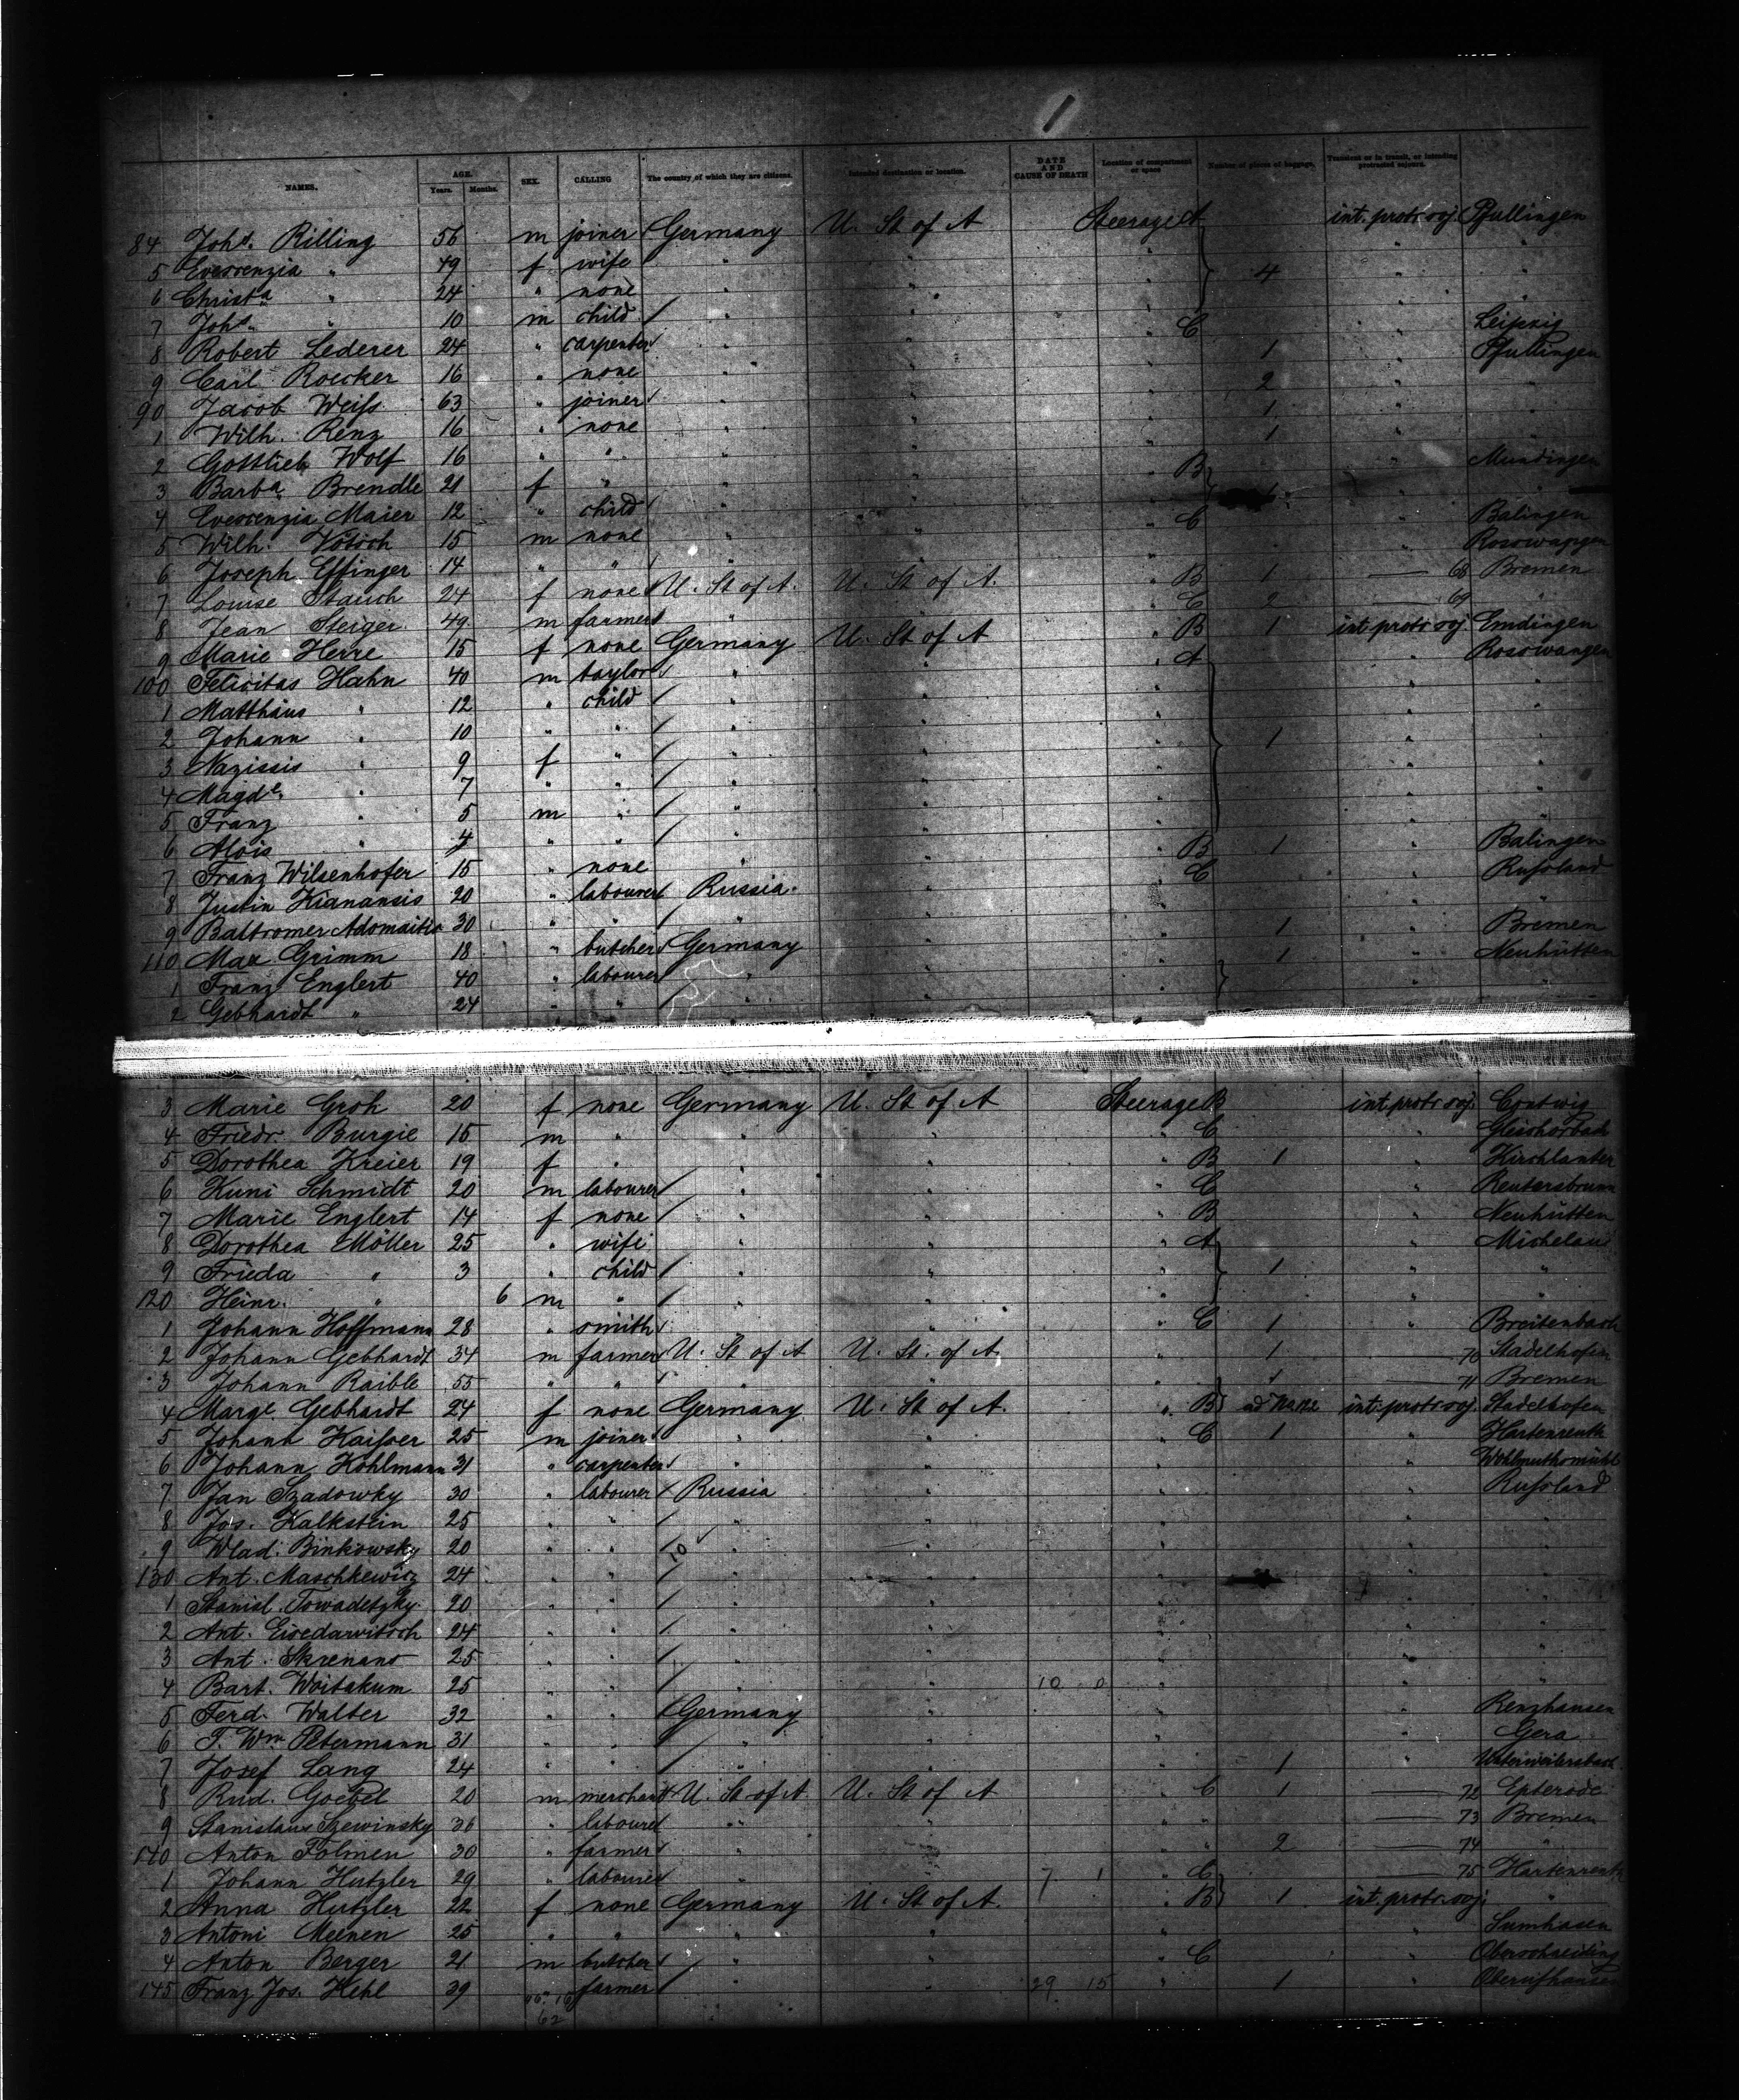 1
NAMES. AGE. Years. Months. SEX. CALLING The country of which they are citizens. Intended destination or location. DATE AND CAUSE OF DEATH Location of compartment or space Number of pieces of baggage. Transient or in transit, or intending protracted sojourn.
84 Johs. Rilling 56 m joiner Germany U. St of A Steerage A int. protr. soj. Pfullingen
5 Crescenzia " 49 f wife " " " 4 " "
6 Christa " 24 " none " " " " "
7 Johs. " 10 m child " " " " "
8 Robert Lederer 24 " carpenter " " " C " Leipzig
9 Carl Roecker 16 " none " " " 1 " Pfullingen
90 Jacob Weiss 63 " joiner " " " 2 " "
1 Wilh. Renz 16 " none " " " 1 " "
2 Gottlieb Wolf 16 " " " " " 1 " "
3 Barba. Brendle 21 f " " " " B " Mundingen
4 Crescenzia Maier 12 " child " " " "
5 Wilh. Votsch 15 m none " " " C " Balingen
6 Joseph Effinger 14 " " " " " " Rosswangen
7 Louise Stauch 24 f none U. St of A. U. St of A. " B 1 68 Bremen
8 Jean Steiger 49 m farmer " " " C 2 69 "
9 Marie Herre 15 f none Germany U. St of A " B 1 int. protr. soj. Emdingen
100 Felicitas Hahn 40 m taylor " " " A " Rosswangen
1 Matthäus " 12 " child " " " " "
2 Johann " 10 " " " " " " "
3 Nazissis " 9 f " " " " 1 " "
4 Magde. " 7 " " " " " " "
5 Franz " 5 m " " " " " "
6 Alois " 4 " " " " " " "
7 Franz Wilsenhofer 15 " none " " " B 1 " Balingen
8 Justin Kianansis 20 " labourer Russia " " C " Russland
9 Baltromer Adomaitis 30 " " " " " " "
110 Max Grimm 18 " butcher Germany " " 1 " Bremen
1 Franz Englert 40 " labourer " " " 1 " Neuhütten
2 Gebhardt " 24 " " " " " " "
3 Marie Groh 20 f none Germany U. St of A Steerage B int. protr. soj. Contwig
4 Friedr. Burgie 15 m " " " " C "
5 Dorothea Kreier 19 f " " " " B 1 " Kirchlauter
6 Kuni Schmidt 20 m labourer " " " C " Reutersbrunn
7 Marie Englert 14 f none " " " B " Neuhütten
8 Dorothea Möller 25 " wife " " " A " Michelau
9 Frieda " 3 " child " " " 1 " "
120 Heinr. " 6 m " " " " " "
1 Johann Hoffmann 28 " smith " " " C 1 " Breitenbach
2 Johann Gebhardt 34 m farmer U. St of A U. St. of A. " 1 70 Stadelhofen
3 Johann Raible 55 " " " " " 1 71 Bremen
4 Marge. Gebhardt 24 f none Germany U. St of A. " B ad No 122 int. protr. soj. Stadelhofen
5 Johann Kaisser 25 m joiner " " " C 1 " Hartenreuth
6 Johann Kohlmann 31 " carpenter " " " " Wohlmuthsmühl
7 Jan Szadowky 30 " labourer Russia " " " Russland
8 Jos. Kalkstein 25 " " " " " " "
9 Wlad. Binkowsky 20 " " 10 " " " " "
130 Ant. Maschkewicz 24 " " " " " " "
1 Stanisl. Towadetzky 20 " " " " " " "
2 Ant. Eisedarwitsch 24 " " " " " " "
3 Ant. Skrenans 25 " " " " " " "
4 Bart. Woitakum 25 " " " " 10 0 " " "
5 Ferd. Walter 32 " " Germany " " " Renzhausen
6 F. Wm. Petermann 31 " " " " " " Gera
7 Josef Lang 24 " " " " " 1 "
8 Rud. Goebel 20 m merchant U. St of A U. St of A " C 1 72 Epterode
9 Stanislaus Szewinsky 36 " labourer " " " 73 Bremen
140 Anton Folmen 30 " farmer " " " 2 74 "
1 Johann Hutzler 29 " labourer " " 7 1 " C 75 Hartenreuth
2 Anna Hutzler 22 f none Germany U. St of A. " B 1 int. protr. soj. "
3 Antoni Meenen 25 " " " " " "
4 Anton Berger 21 m butcher " " " C " Oberschneiding
145 Franz Jos. Hehl 39 " farmer " " 29 15 " 1 "
62